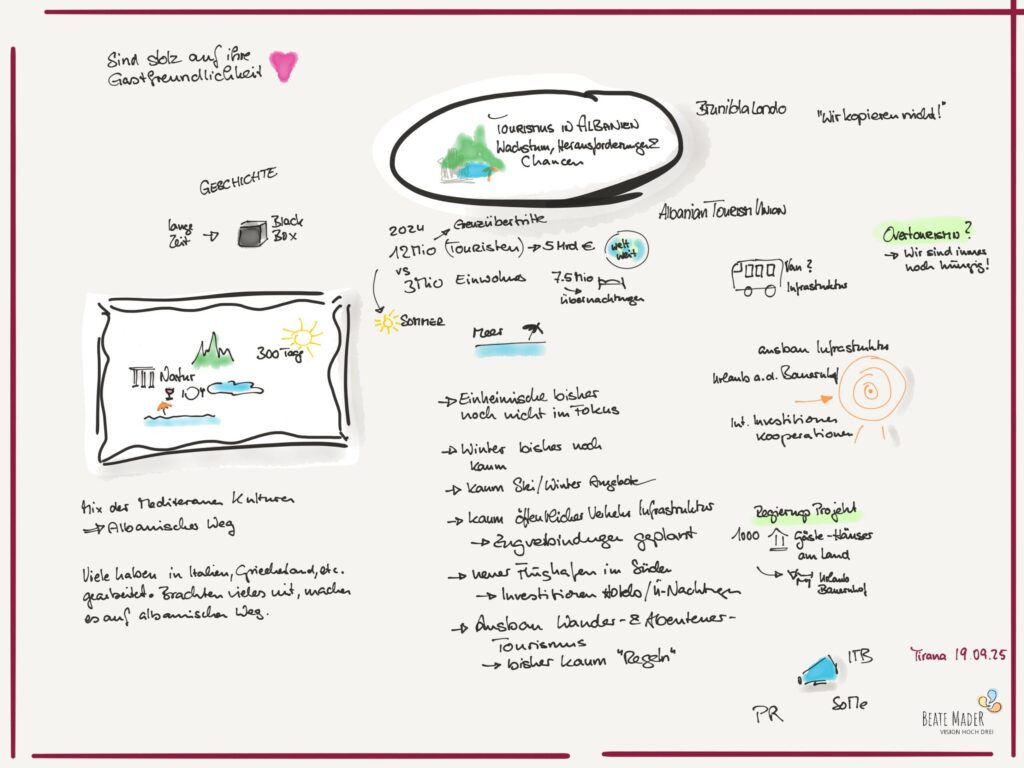 Sind stolz auf ihre
Gastfreundlichkeit
Tourismus in Albanien
Wachstum, Herausforderungen &
Chancen
Brunibla Lando
"Wir kopieren nicht!"
Albanian Tourism Union
GESCHICHTE
lange
Zeit
Black
Box
2024
Grenzübertritte
12 Mio (Touristen) → 5 Mrd €
welt
weit
vs
3 Mio Einwohner
7.5 Mio
→
Übernachtungen
Sommer
Meer
Overtourism?
→ Wir sind immer
noch hungrig!
Van?
Infrastruktur
300 Tage
Natur
ausbau Infrastruktur
Urlaub a. d. Bauernhof
Int. Investitionen
Kooperationen
→ Einheimische bisher
noch nicht im Fokus
→ Winter bisher noch
kaum
→ kaum Ski/Winter Angebote
→ kaum öffentlicher Verkehr Infrastruktur
→ Zugverbindungen geplant
→ neuer Flughafen im Süden
→ Investitionen Hotels/Ü-Nachtungen
→ Ausbau Wander- & Abenteuer-
Tourismus
→ bisher kaum "Regeln"
Mix der Mediteranen Kulturen
→ Albanischer Weg
Viele haben in Italien, Griechenland, etc.
gearbeitet. Brachten vieles mit, machen
es auf albanischen Weg.
Regierungs Projekt
1000
Gäste-Häuser
am Land
Urlaub
Bauernhof
ITB
SoMe
PR
Tirana 19.09.25
BEATE MADER
VISION HOCH DREI